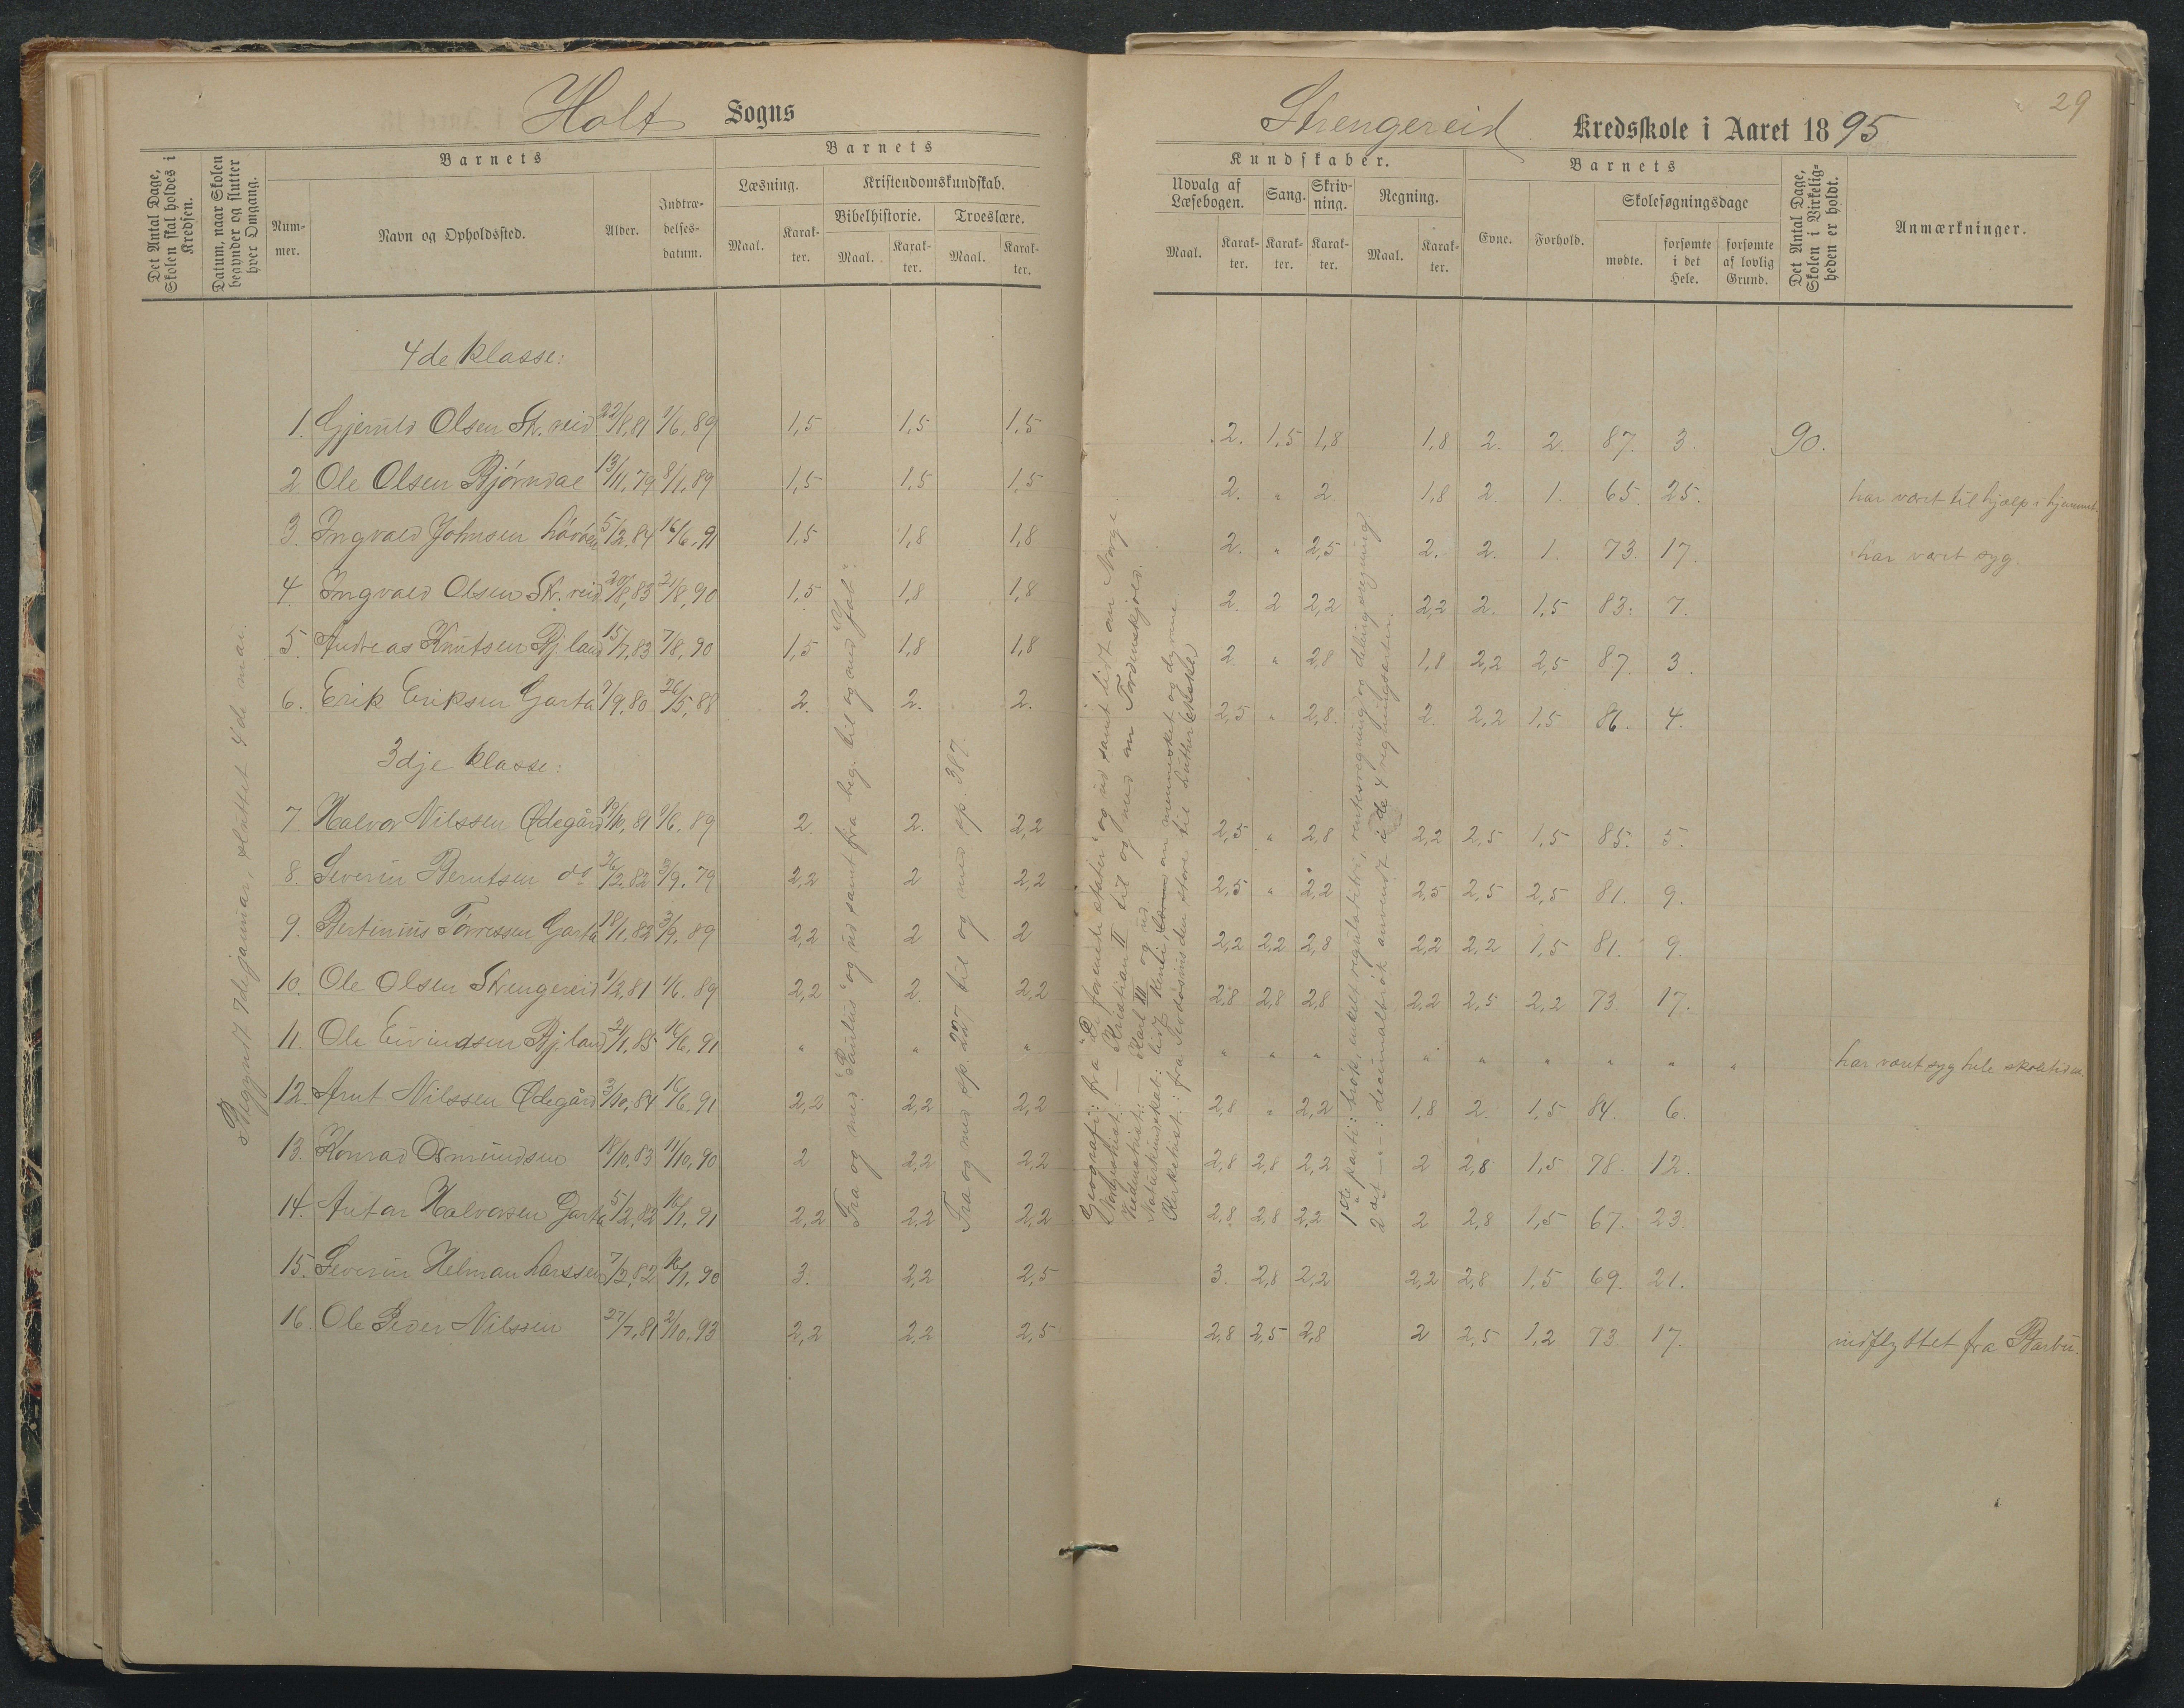 Holt Sogns
Strengereid Kredsskole i Aaret 1895
29
Det Antal Dage, Skolen skal holdes i Kredsen.
Datum, naar Skolen begynder og slutter hver Omgang.
Barnets
Nummer.
Navn og Opholdssted.
Alder.
Indtrædelsesdatum.
Barnets
Læsning.
Kristendomskundskab.
Bibelhistorie.
Troeslære.
Maal. Karakter. Maal. Karakter. Maal. Karakter.
Kundskaber.
Udvalg af Læsebogen.
Sang.
Skrivning.
Regning.
Maal. Karakter. Karakter. Karakter. Maal. Karakter.
Barnets
Evne. Forhold.
Skolesøgningsdage
mødte. forsømte i det Hele. forsømte af lovlig Grund.
Det Antal Dage, Skolen i Virkeligheden er holdt.
Anmærkninger.
Begyndt 7de januar, sluttet 4de mai.
4de klasse:
1. Gjeruld Olsen St. reid 22/8,81 1/6,89 1,5 1,5 1,5 2. 1,5 1,8 1,8 2. 2. 87. 3. 90.
2 Ole Olsen Bjørndal 13/11,79 8/1,89 1,5 1,5 1,5 2. " 2 1,8 2. 1. 65. 25. har været til hjælp i hjemmet.
3. Ingvald Johnsen 5/2,84 16/6,91 1,5 1,8 1,8 2. " 2,5 2. 2. 1. 73. 17. har været syg.
4. Ingvald Olsen St. reid 20/8,83 21/8,90 1,5 1,8 1,8 2. 2 2,2 2,2 2. 1,5 83. 7.
5. Andreas Knutsen Bj.land 15/7,83 7/8,90 1,5 1,8 1,8 2 " 2,8 1,8 2,2 2,5 87. 3.
6. Erik Eriksen Garta 7/9,80 26/5,88 2. 2. 2. 2,5 " 2,8. 2. 2,2 1,5 86. 4.
3dje klasse:
7. Halvor Nilssen Ødegård 19/10,81 1/6.89 2. 2. 2,2 2,5 " 2,8 2,2 2,5 1,5 85. 5.
8. Severin Berntsen do 26/2,82 3/9.79 2,2 2 2,2 2,5 " 2,2 2,5 2,5 2,5 81. 9.
9. Bertinius Tørressen Garta 18/1,82 3/9.89 2,2 2 2 2,2 2,2 2,8 2,2 2,2 1,5 81. 9.
10. Ole Olsen Strengereid 1/2,81 1/6.89 2,2 2. 2,2 2,8 2,8 2,8 2,2 2,5 2,2 73. 17.
11. Ole Eivindsen Bj.land 2/1,85 16/6,91 " " " " " " " " " " " " har været syg hele skoletiden.
12. Arnt Nilssen Ødegård 3/10,84 16/6,91 2,2 2,2 2,2 2,8 " 2,2 1,8 2. 1,5 84. 6.
13. Konrad Osmundsen 18/10,83 11/10,90 2 2,2 2,2 2,8 2,8 2,2 2 2,8 1,5 78. 12.
14. Anton Halvorsen Garta 5/2,82 16/1,91 2,2 2,2 2,2 2,8 2,8 2,2 2 2,8 1,5 67. 23.
15. Severin Helman Larssen 7/2,82 16/1,90 3. 2,2 2,5 3. 2,8 2,2 2,2 2,8 1,5 69. 21.
16. Ole Peder Nilssen 27/7,81 2/10.93 2,2 2,2 2,5 2,8 2,5 2,8 2 2,5 1,2 73 17. indflyttet fra Barbu.
Fra og med "Paulus" og ud samt fra beg. til og med "Job".
Fra og med sp. 227 til og med sp. 387.
Geografi: fra "De forenede stater" og ud samt lidt om Norge.
Norgeshist.: — Kristian II til og med om Tordenskjold.
Verdenshist.: — Karl III og ud.
Naturkundskab: lidt om mennesket og dyrene
Kirkehist.: fra Teodosius den store til Luther
1ste parti: brøk, enkelt reguladetri, rentesregning og delingsregning.
2det —: decimalbrøk anvendt i de 4 regningsarter.